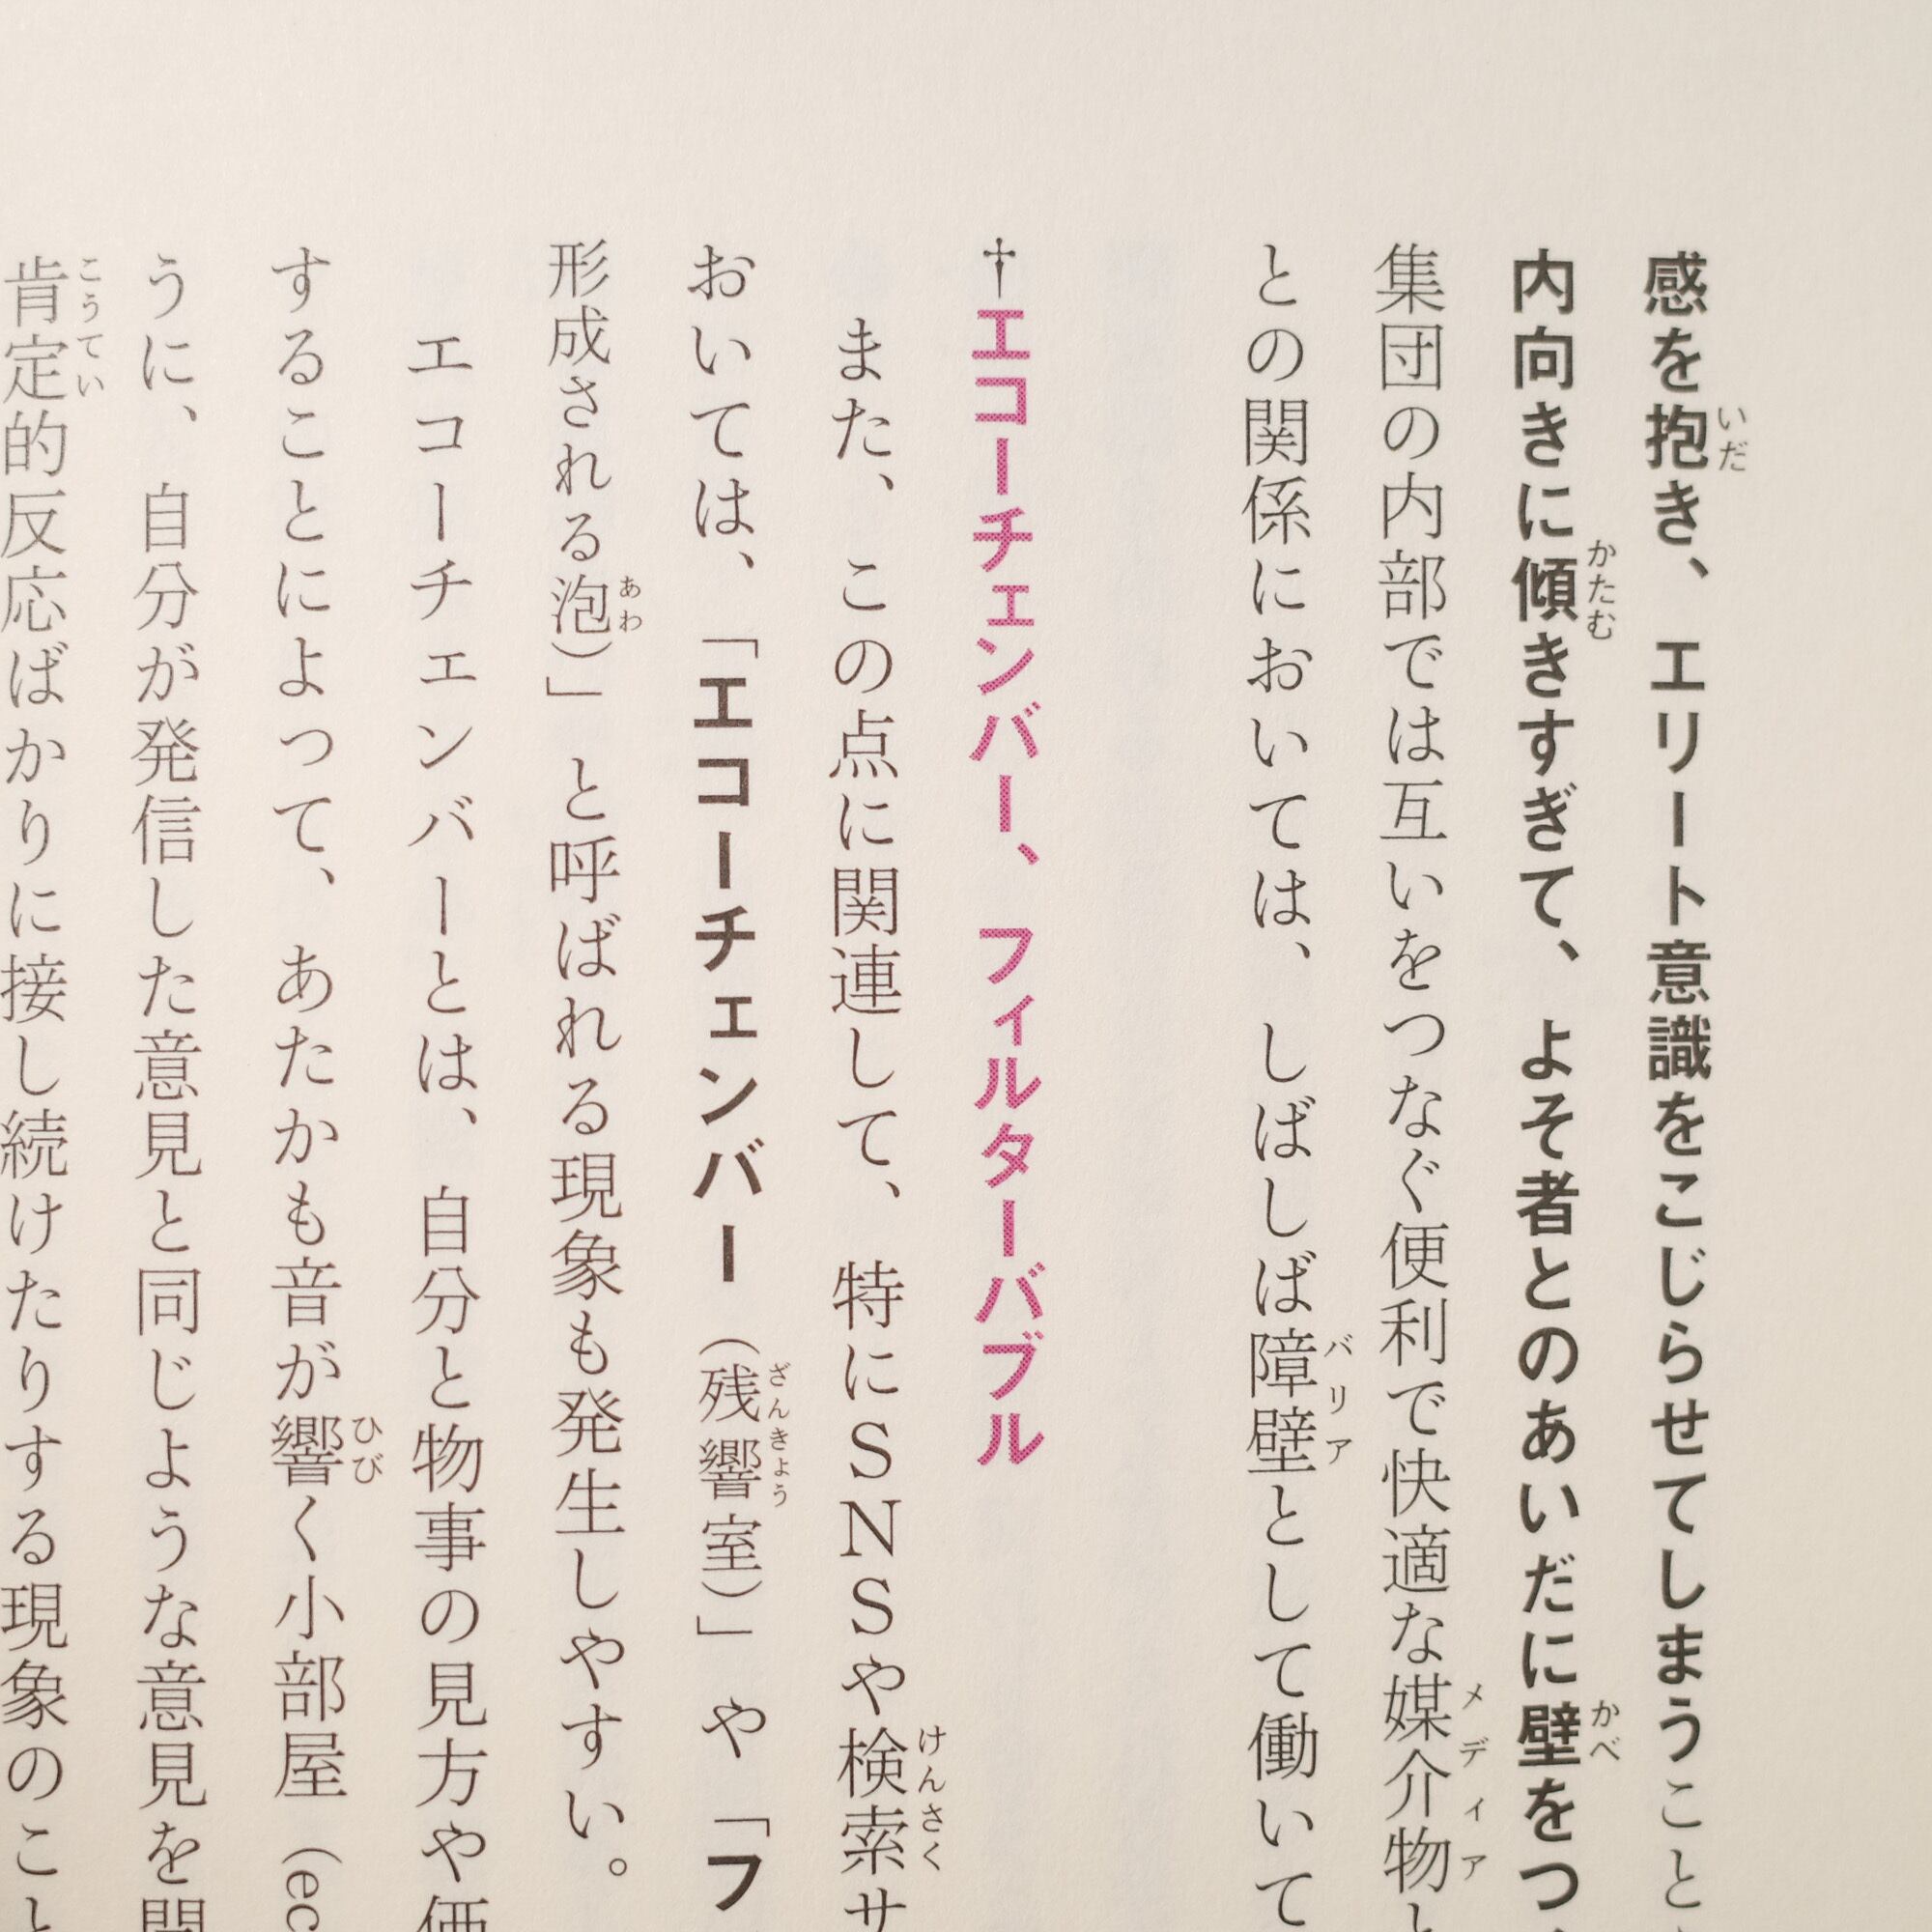 感を抱き、エリート意識をこじらせてしまうこと
いだ
内向きに傾きすぎて、よそ者とのあいだに壁をつ
かたむ
かべ
集団の内部では互いをつなぐ便利で快適な媒介物と
メディア
との関係においては、しばしば障壁として働いて
バリア
†エコーチェンバー、フィルターバブル
また、この点に関連して、特にSNSや検索サ
けんさく
おいては、「エコーチェンバー（残響室）」や「フ
ざんきょう
形成される泡）」と呼ばれる現象も発生しやすい。
あわ
エコーチェンバーとは、自分と物事の見方や価
することによって、あたかも音が響く小部屋（ec
ひび
うに、自分が発信した意見と同じような意見を
肯定的反応ばかりに接し続けたりする現象のこと
こうてい